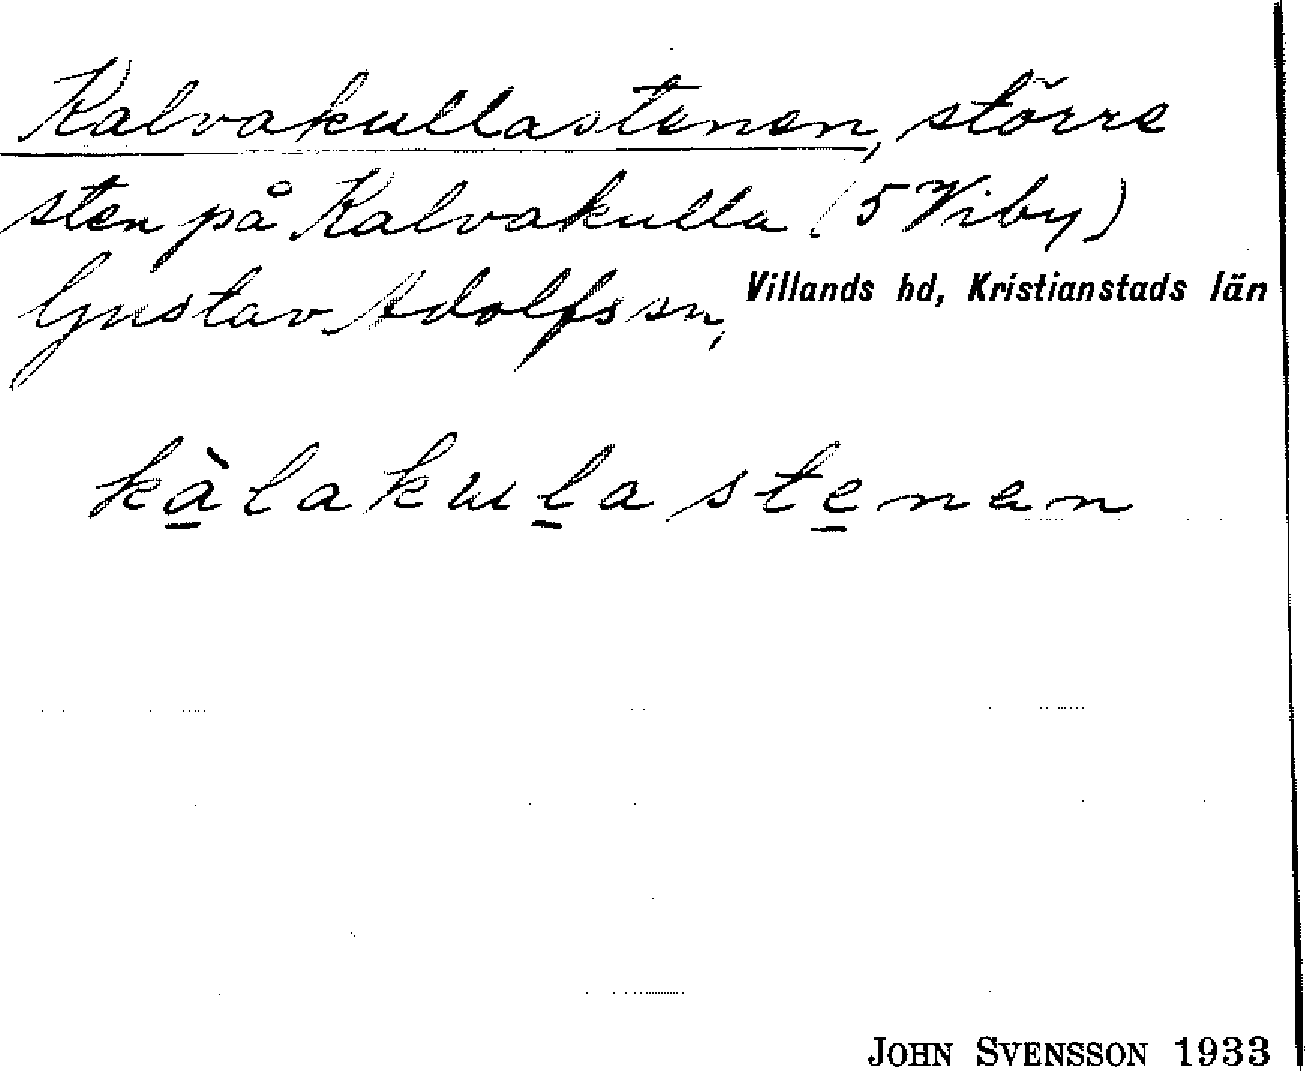 Kalvakullastenen, större
sten på Kalvakulla (5 Viby)
Gustav Adolfs sn, Villands hd, Kristianstads län
kàlakulastenan
JOHN SVENSSON 1933